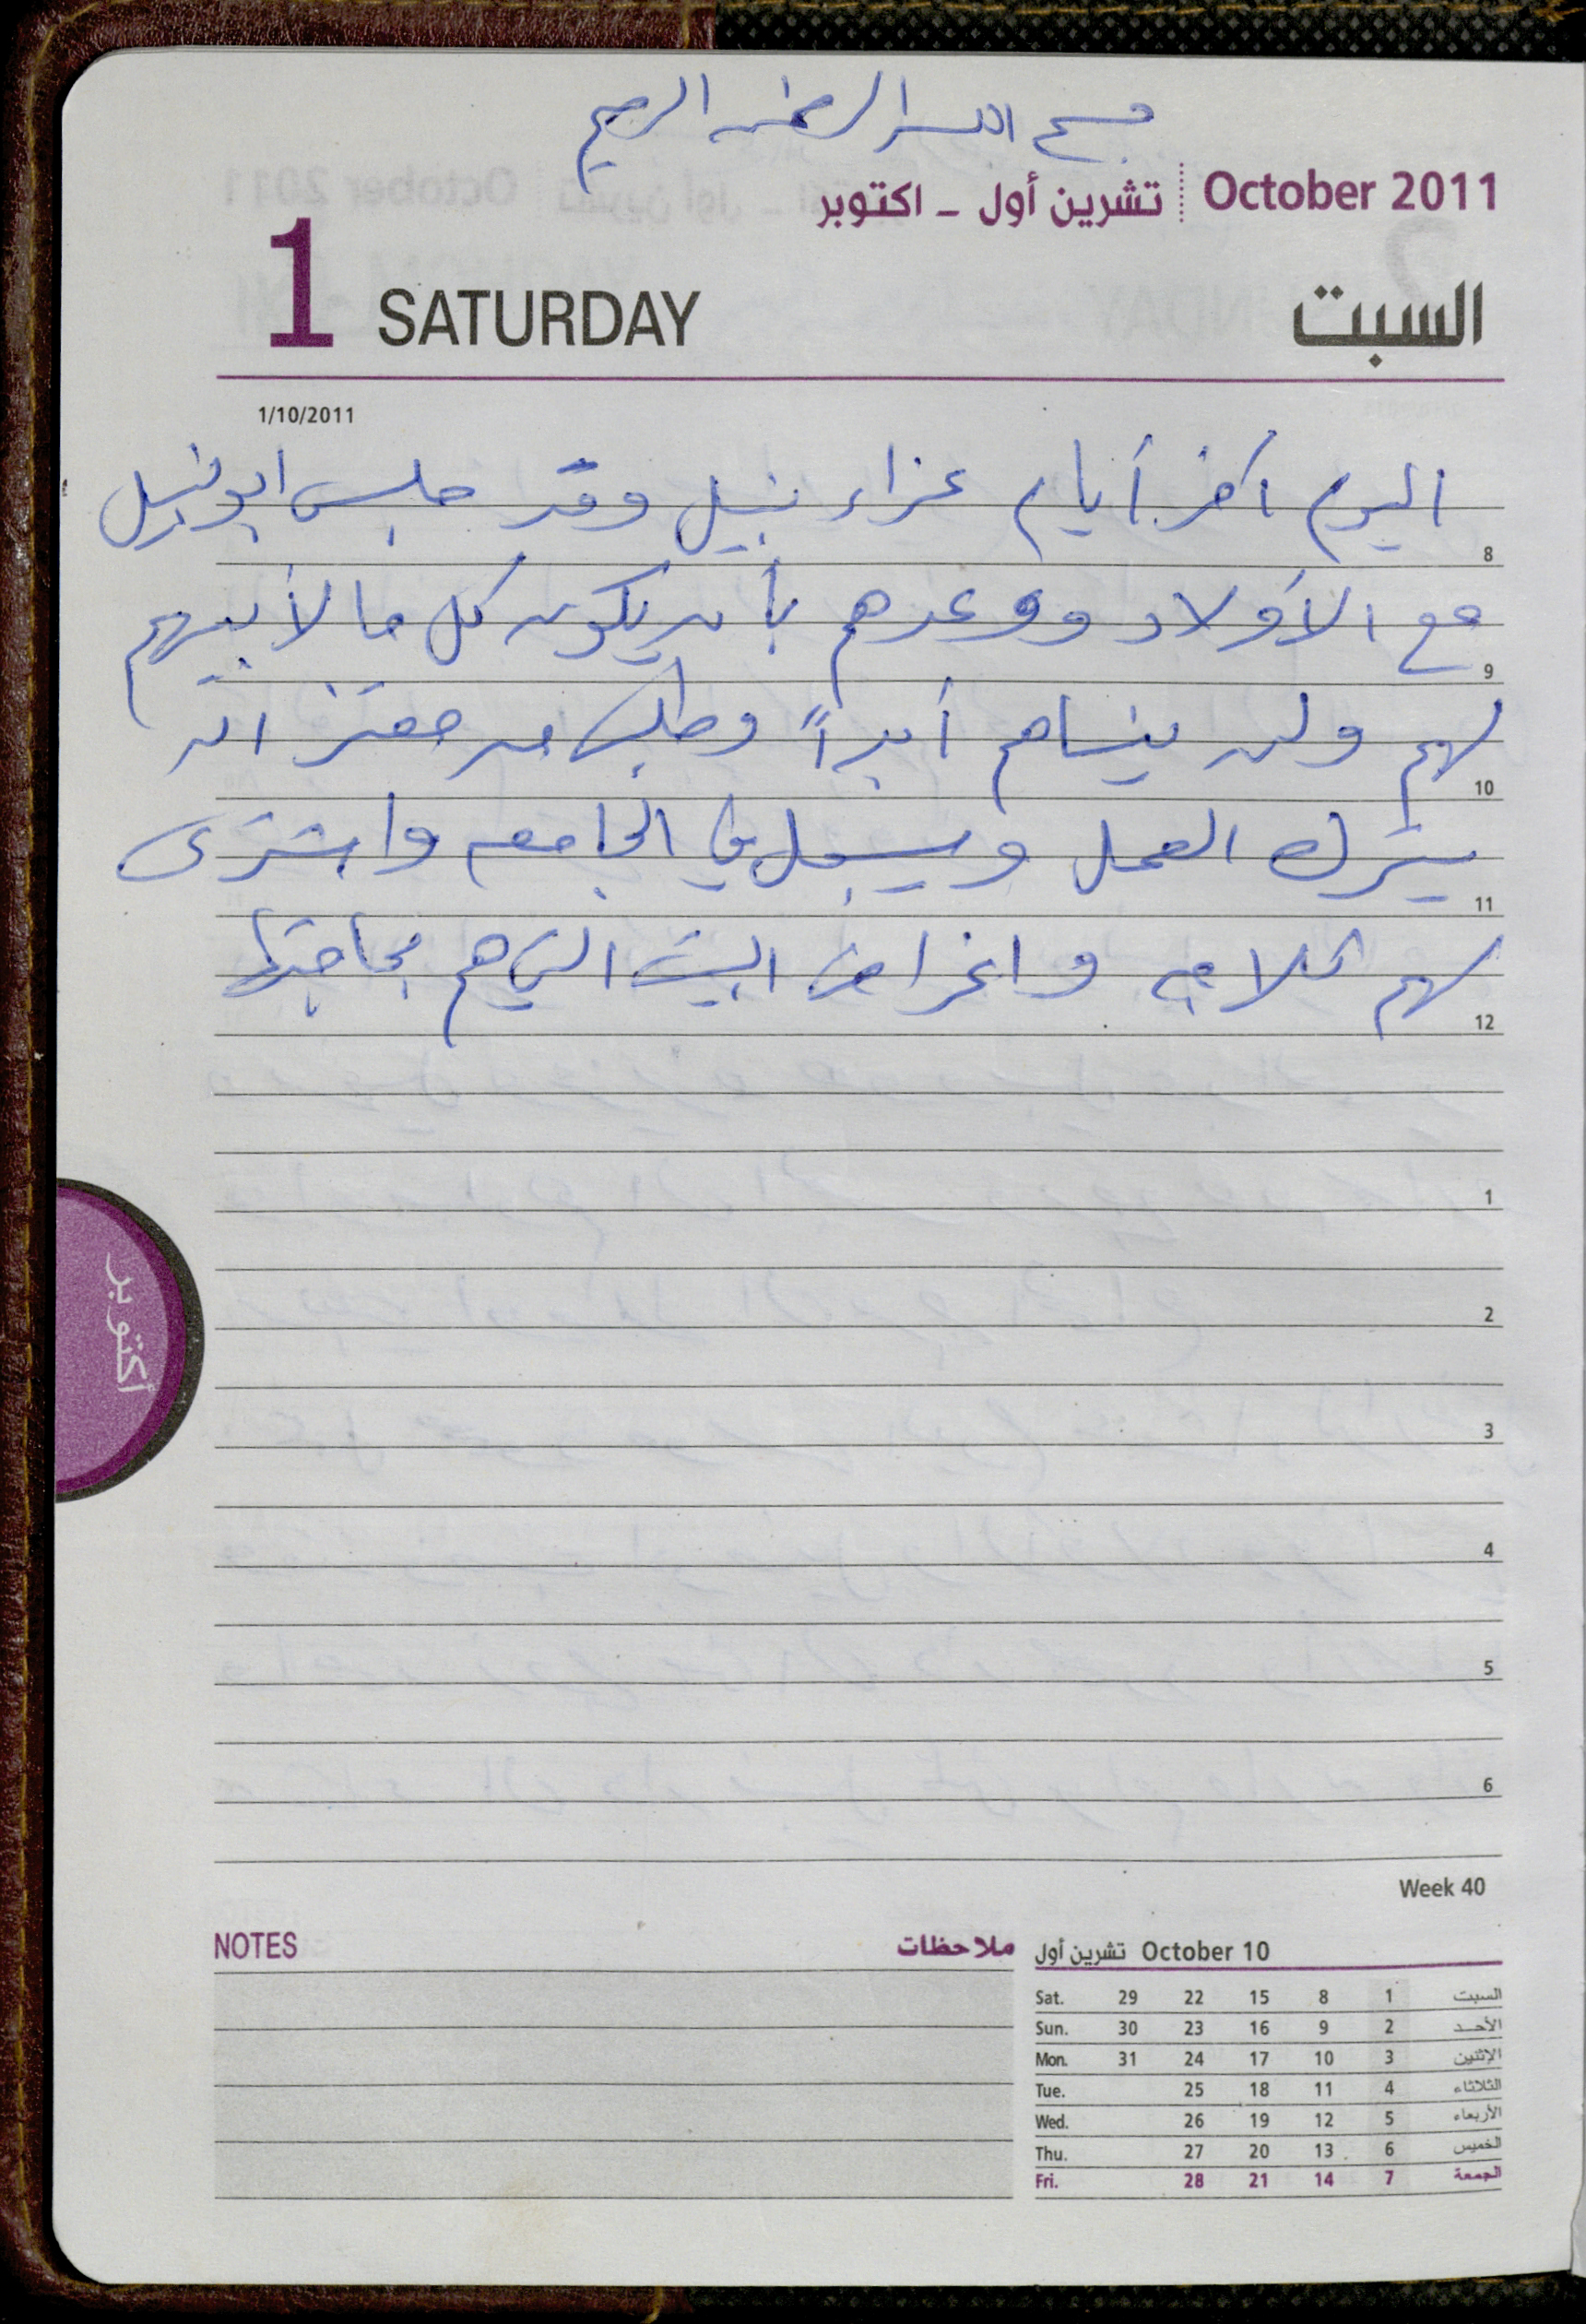 بسم الله الرحمن الرحيم
October 2011 تشرين أول - اكتوبر
1 SATURDAY السبت
1/10/2011
اليوم آخر أيام عزاء نبيل وقد جلس ابو نبيل
8
مع الأولاد ووعدهم بأن يكون كل ما لأبيهم
9
لهم ولن ينساهم أبداً وطلب من معتز ان
10
يترك العمل ويسجل في الجامعه واشترى
11
لهم ثلاجه واغراض البيت التي هم بحاجتها
12
1
2
3
4
5
6
أكتوبر
Week 40
NOTES ملاحظات
October 10 تشرين أول
Sat. 29 22 15 8 1 السبت
Sun. 30 23 16 9 2 الأحـد
Mon. 31 24 17 10 3 الإثنين
Tue. 25 18 11 4 الثلاثاء
Wed. 26 19 12 5 الأربعاء
Thu. 27 20 13 6 الخميس
Fri. 28 21 14 7 الجمعة